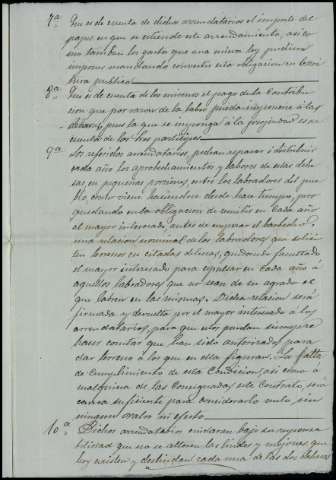 7ª Es de cuenta de dichos arrendatarios el importe del
papel en que se estiende este arrendamiento, asi co-
mo tambien los gastos que una nueva ley pudiera
imponer mandando convertir esta obligacion en Escri-
tura publica.
8ª Es de cuenta de los mismos el pago de la Contribu-
cion que por razon de la labor pueda imponerse á las
dehesas, pues la que se imponga á la propiedad es de
cuenta de los tres partícipes.
9ª Los referidos arrendatarios podran repartir ó distribuir
cada año los aprovechamientos y labores de estas dehe-
sas en pequeñas porciones entre los labradores del pue-
blo como viene haciendose desde hace tiempo, pero
quedando en la obligacion de remitir en cada año
al mayor interesado, antes de empezar el barbecho,
una relacion nominal de los labradores que soliciten
terreno en citadas dehesas, quedando facultado
el mayor interesado para espulsar en cada año á
aquellos labradores que no sean de su agrado el
que labren en las mismas. Dicha relacion será
firmada y devuelta por el mayor interesado á los
arrendatarios, para que estos puedan siempre
hacer constar que han sido autorizados para
dar terreno á los que en ella figuran. La falta
de cumplimiento de esta Condicion, asi como á
cualquiera de las consignadas en este Contrato, será
causa suficiente para considerarlo nulo, sin
ningun valor ni efecto.
10ª Dichos arrendatarios cuidaran bajo su responsa-
bilidad que no se alteren las lindes y mojones que
hoy existen y deslindan cada una de las dos dehesas